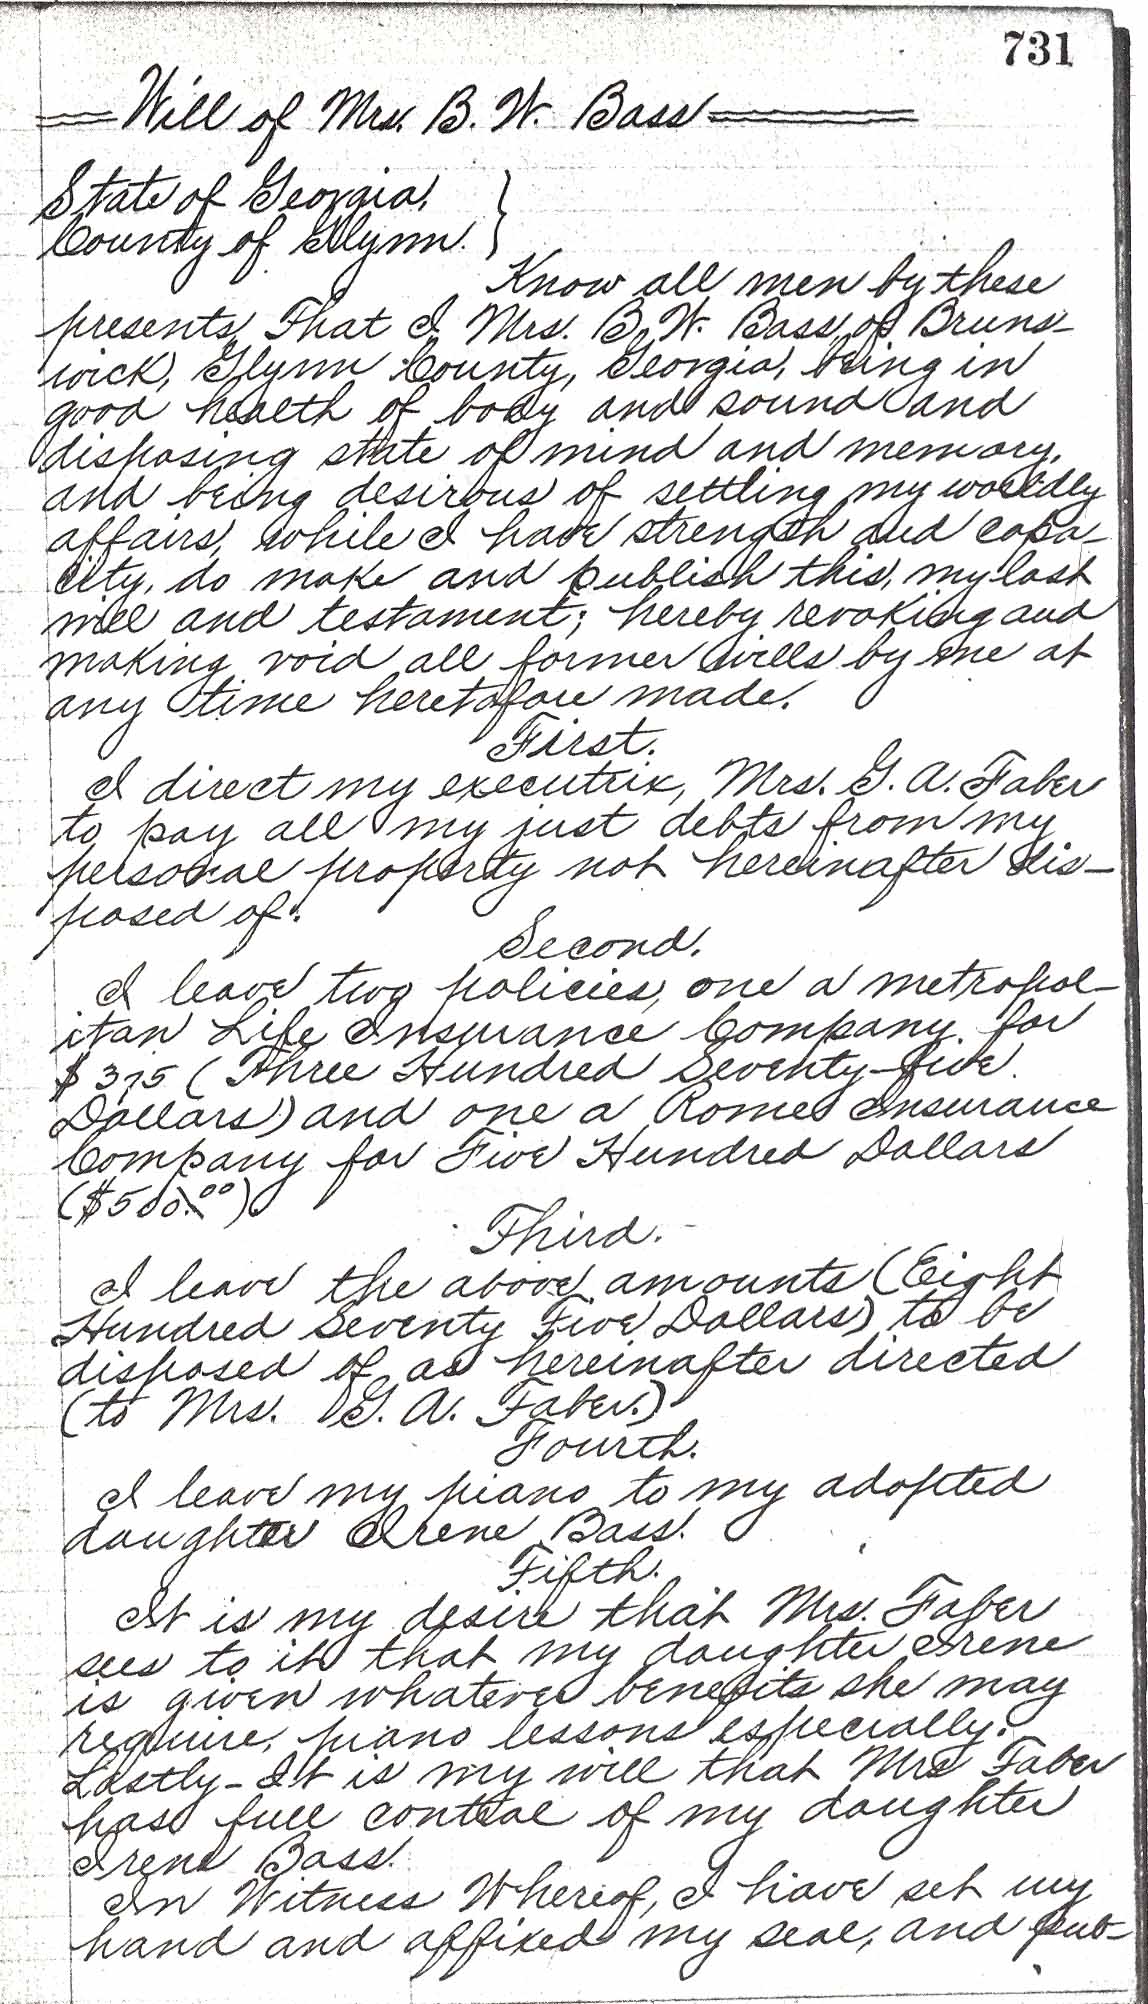 731
Will of Mrs. B. W. Bass
State of Georgia,
County of Glynn.
Know all men by these
presents, That I, Mrs. B. W. Bass, of Bruns-
wick, Glynn County, Georgia, being in
good health of body and sound and
disposing state of mind and memory,
and being desirous of settling my worldly
affairs, while I have strength and capa-
city, do make and publish this, my last
will and testament; hereby revoking and
making void all former wills by me at
any time heretofore made.
First.
I direct my executrix, Mrs. G. A. Faber
to pay all my just debts from my
personal property not hereinafter dis-
posed of.
Second.
I leave two policies, one a metropol-
itan Life Insurance Company, for
$375 (Three Hundred Seventy-five
Dollars) and one a Rome Insurance
Company for Five Hundred Dollars
($500.00).
Third.
I leave the above amounts (Eight
Hundred Seventy Five Dollars) to be
disposed of as hereinafter directed
(to Mrs. G. A. Faber.)
Fourth.
I leave my piano to my adopted
daughter Irene Bass.
Fifth.
It is my desire that Mrs. Faber
sees to it that my daughter Irene
is given whatever benefits she may
require, piano lessons especially.
Lastly - It is my will that Mrs Faber
has full control of my daughter
Irene Bass.
In Witness Whereof, I have set my
hand and affixed my seal, and pub-